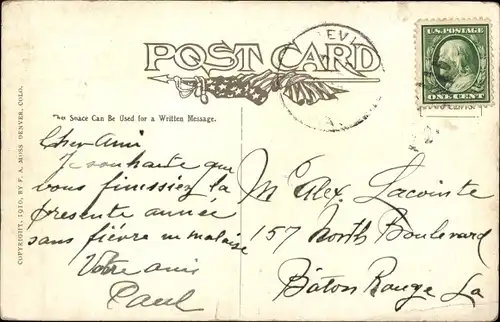 POST CARD
This Space Can Be Used for a Written Message.
COPYRIGHT, 1910, BY F. A. MOSS DENVER, COLO.
Cher Ami
Je souhaite que
vous finissiez la
présente année
sans fièvre ni malaise
Votre ami
Paul
U.S. POSTAGE
ONE CENT
M Alex. Lacointe
157 North Boulevard
Bâton Rouge La